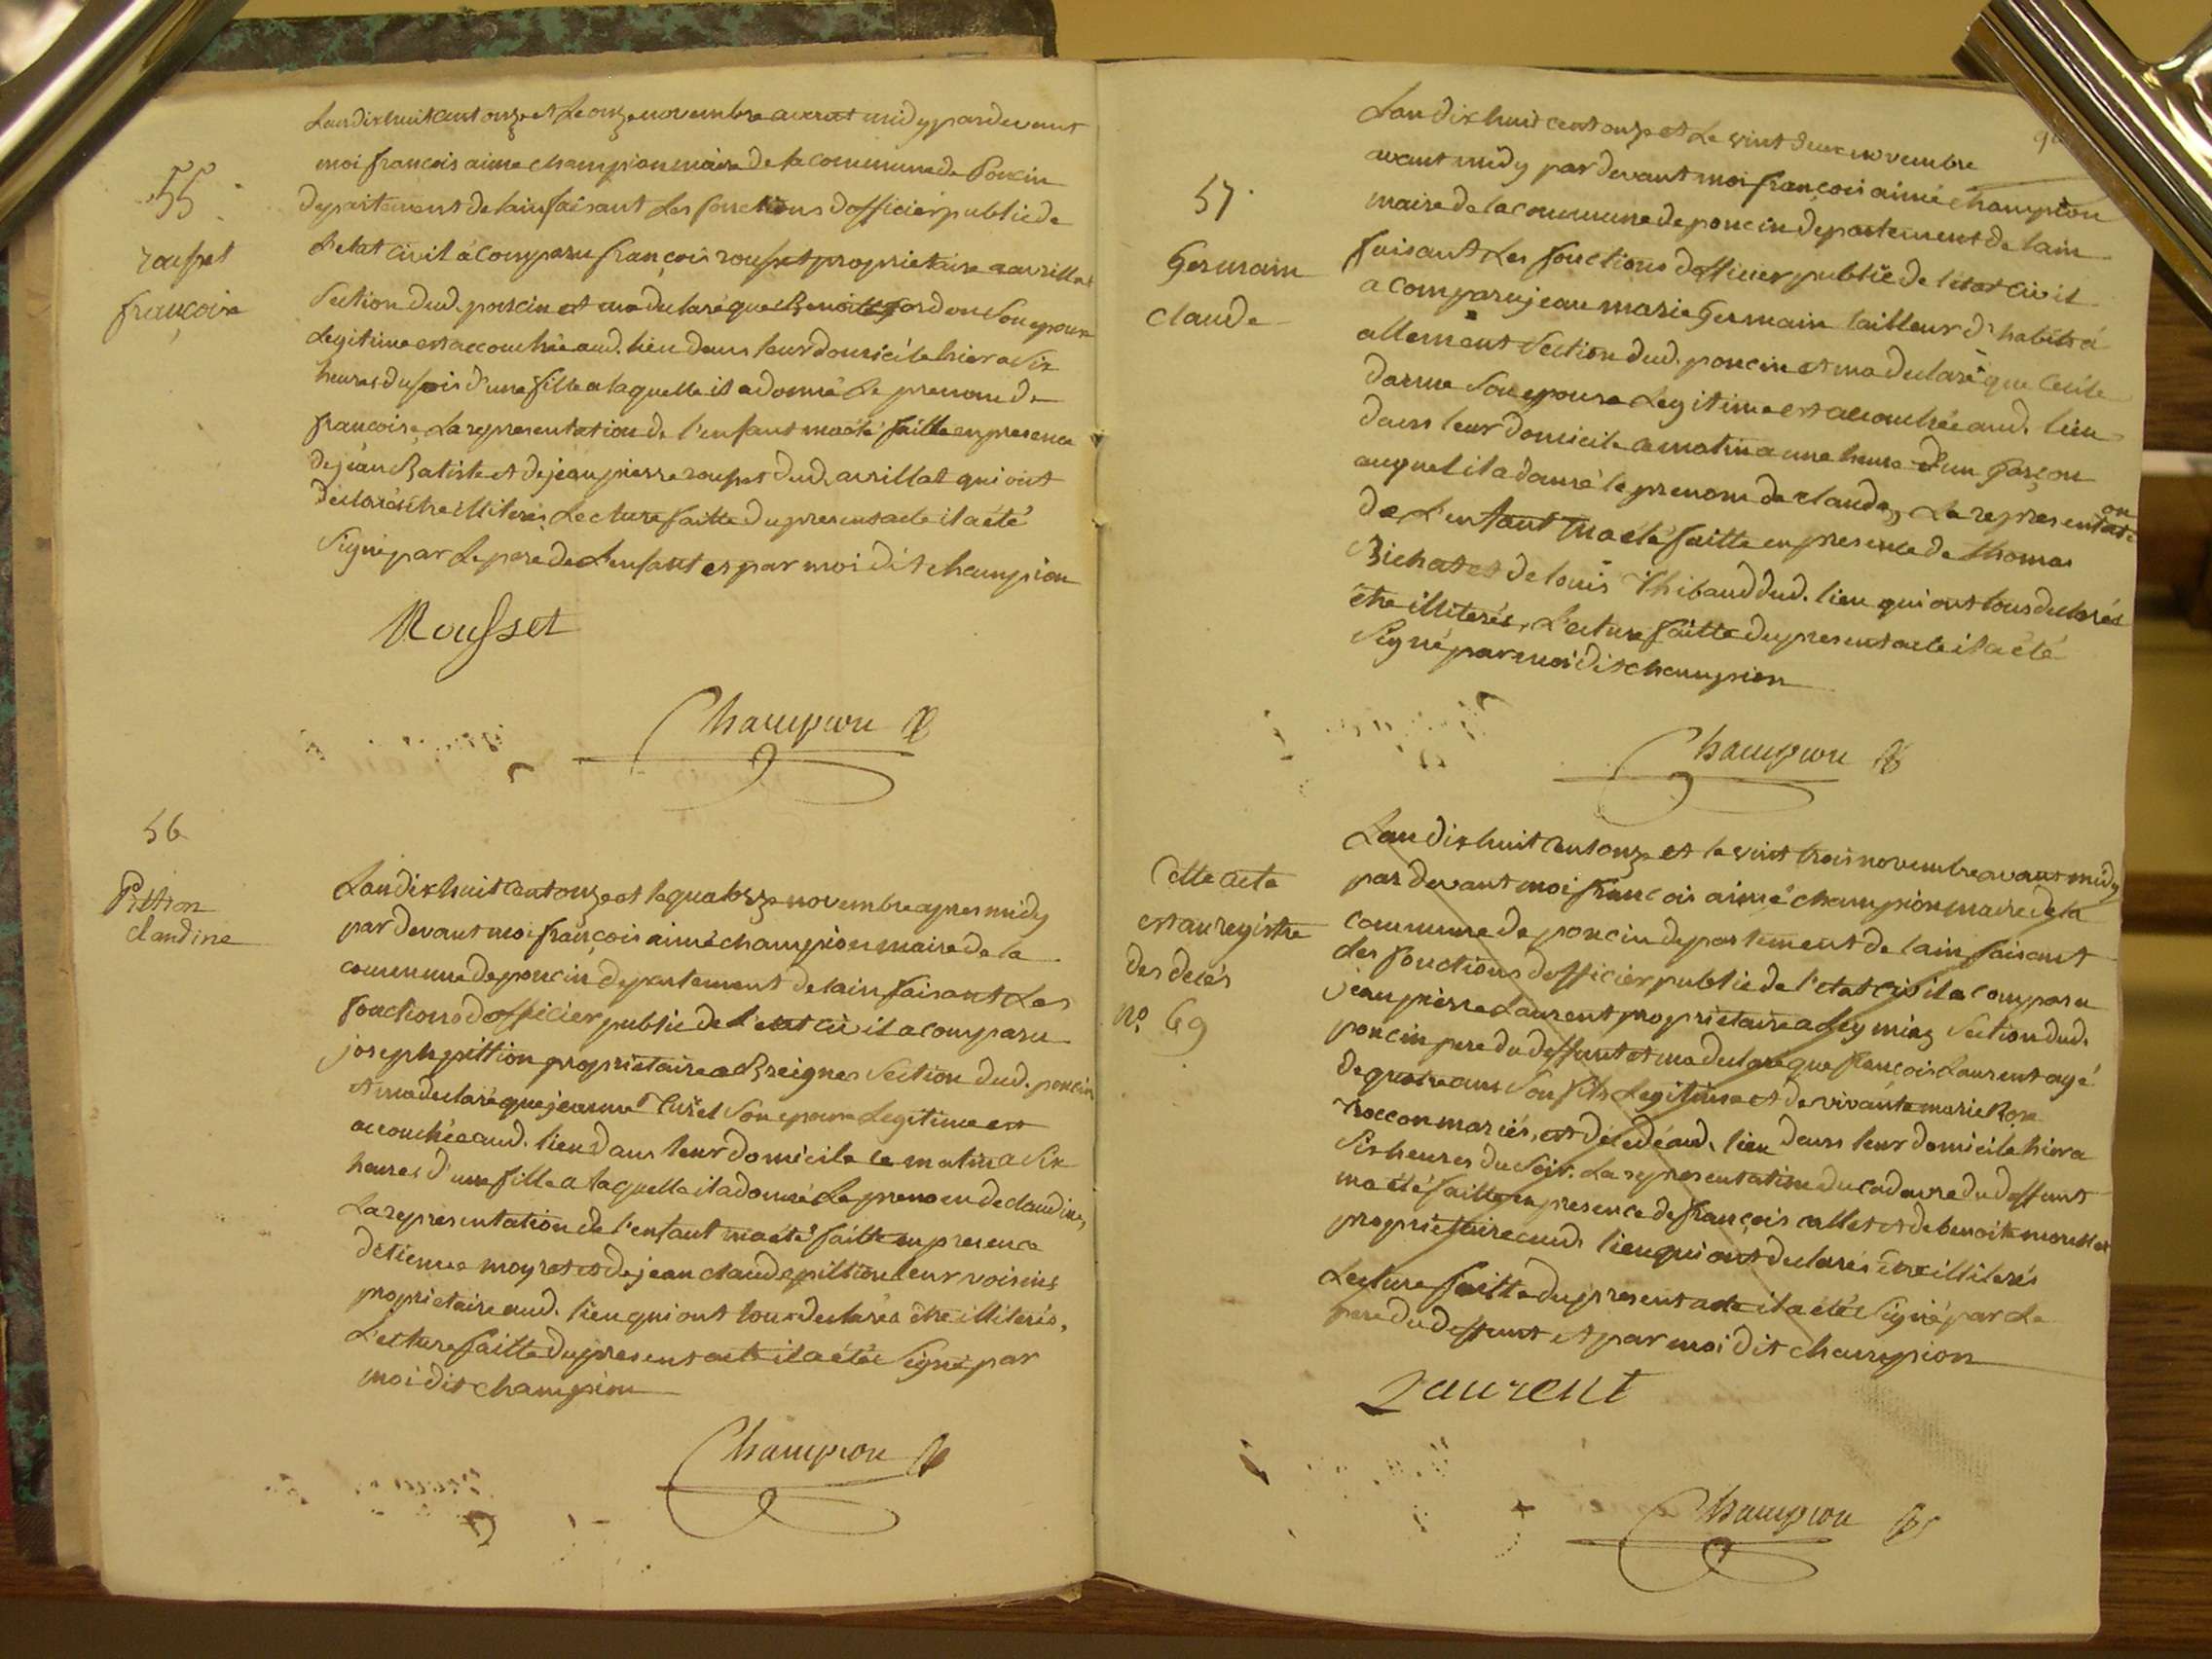 55
rousset
françoise
Lan dix huit cent onze et Le onze novembre avant midy par devant
moi francois aimé champion maire de la commune de Poncin
departement de lain faisant Les fonctions dofficier public de
L'etat civil à comparu françois rousset proprietaire a avrillat
Section dud. poncin et ma declaré que Benoitte jordon Son epouse
Legitime est accouchée aud. lieu dans leur domicile hier a Six
heures du soir d'une fille a laquelle il a donné Le prenom de
francoise, La representation de l'enfant ma été faitte en presence
de jean Batiste et de jean pierre rousset dud. avrillat qui ont
declarés être illiterés, Lecture faitte du present acte il a été
Signé par Le pere de L'enfant et par moi dit champion
Rousset
Champion
56
Pittion
claudine
Lan dix huit cent onze et le quatorze novembre apres midy
par devant moi françois aimé champion maire de la
commune de poncin departement de lain faisant Les
fonctions dofficier public de l'etat civil a comparu
joseph pittion proprietaire a Breignes Section dud. poncin
et ma declaré que jeanne Turel Son epouse Legitime est
accouchée aud. lieu dans leur domicile ce matin a Six
heures d'une fille a laquelle il a donné Le prenom de claudine,
La representation de l'enfant ma été faitte en presence
detienne moyret et de jean claude pittion leur voisins
proprietaire aud. lieu qui ont tous declarés être illiterés,
Lecture faitte du present acte il a été Signé par
moi dit champion
Champion
57
Germain
claude
Lan dix huit cent onze et Le vint deux novembre
avant midy par devant moi françois aimé champion
maire de la commune de poncin departement de lain
faisant Les fonctions dofficier public de l'état civil
a comparu jean marie Germain tailleur d'habits à
allement Section dud. poncin et ma declaré que Cecile
darme Son epouse Legitime est accouchée aud. lieu
dans leur domicile ce matin a une heure d'un Garçon
auquel il a donné le prenom de claude, La representation
de L'enfant ma été faitte en presence de thomas
Bichat et de louis Thibaud dud. lieu qui ont tous declarés
être illiterés, Lecture faitte du present acte il a été
Signé par moi dit champion
Champion
Cette acte
est au registre
des decés
no. 69
Lan dix huit cent onze et le vint trois novembre avant midy
par devant moi françois aimé champion maire de la
commune de poncin departement de lain faisant
les fonctions dofficier public de l'etat civil a comparu
jean pierre Laurent proprietaire a Leymiaz Section dud.
poncin pere du deffunt et ma declaré que françois Laurent agé
de quatre ans Son fils Legitime et de vivante marie Rose
Troccon mariés, est décédé aud. lieu dans leur domicile hier a
Six heures du Soir. La representation du cadavre du deffunt
ma été faitte en presence de françois callet et de benoit mousset
proprietaire aud. lieu qui ont declarés être illiterés
Lecture faitte du present acte il a été Signé par Le
pere du deffunt et par moi dit champion
Laurent
Champion